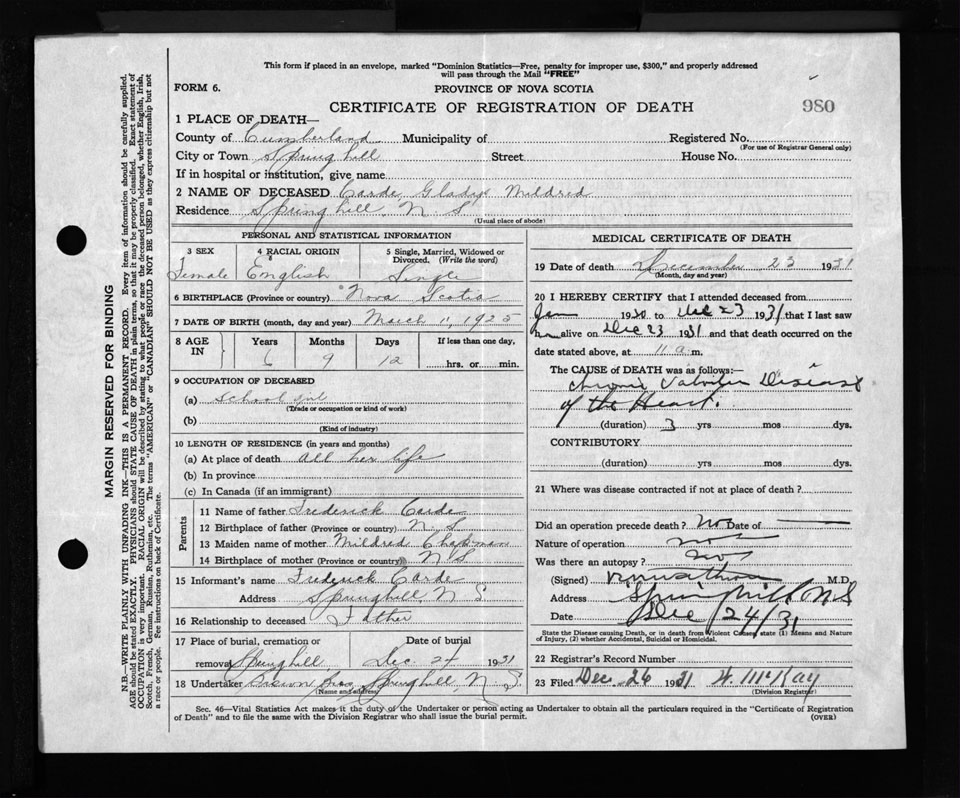 This form if placed in an envelope, marked "Dominion Statistics—Free, penalty for improper use, $300," and properly addressed
will pass through the Mail "FREE"
FORM 6.
PROVINCE OF NOVA SCOTIA
CERTIFICATE OF REGISTRATION OF DEATH
980
1 PLACE OF DEATH—
County of Cumberland Municipality of Registered No.
(For use of Registrar General only)
City or Town Springhill Street House No.
If in hospital or institution, give name
2 NAME OF DECEASED Carde, Gladys Mildred
Residence Springhill, N. S
(Usual place of abode)
PERSONAL AND STATISTICAL INFORMATION
3 SEX 4 RACIAL ORIGIN 5 Single, Married, Widowed or
Divorced. (Write the word)
Female English Single
6 BIRTHPLACE (Province or country) Nova Scotia
7 DATE OF BIRTH (month, day and year) March 11, 1925
8 AGE IN Years Months Days If less than one day,
6 9 12 hrs. or min.
9 OCCUPATION OF DECEASED
(a) School girl
(Trade or occupation or kind of work)
(b)
(Kind of industry)
10 LENGTH OF RESIDENCE (in years and months)
(a) At place of death all her life
(b) In province
(c) In Canada (if an immigrant)
Parents
11 Name of father Frederick Carde
12 Birthplace of father (Province or country) N. S
13 Maiden name of mother Mildred Chapman
14 Birthplace of mother (Province or country) N S
15 Informant's name Frederick Carde
Address Springhill, N S
16 Relationship to deceased Father
17 Place of burial, cremation or Date of burial
removal Springhill Dec 24 1931
18 Undertaker Brown Bros, Springhill, N. S.
(Name and address)
MEDICAL CERTIFICATE OF DEATH
19 Date of death December 23 1931
(Month, day and year)
20 I HEREBY CERTIFY that I attended deceased from
Jan 1930 to Dec 23 1931 that I last saw
h alive on Dec 23 1931 and that death occurred on the
date stated above, at 11 a m.
The CAUSE OF DEATH was as follows:—
Chronic Valvular Disease
of the Heart.
(duration) 3 yrs mos dys.
CONTRIBUTORY
(duration) yrs. mos. dys.
21 Where was disease contracted if not at place of death?
Did an operation precede death? No Date of —
Nature of operation no
Was there an autopsy? no
(Signed) M.D.
Address Springhill N S
Date Dec / 24 / 31
State the Disease causing Death, or in death from Violent Causes, state (1) Means and Nature
of Injury, (2) whether Accidental, Suicidal or Homicidal.
22 Registrar's Record Number
23 Filed Dec. 26 1931 McKay
(Division Registrar)
Sec. 46—Vital Statistics Act makes it the duty of the Undertaker or person acting as Undertaker to obtain all the particulars required in the "Certificate of Registration
of Death" and to file the same with the Division Registrar who shall issue the burial permit.
(OVER)
MARGIN RESERVED FOR BINDING
N.B.—WRITE PLAINLY WITH UNFADING INK—THIS IS A PERMANENT RECORD. Every item of information should be carefully supplied.
AGE should be stated EXACTLY. PHYSICIANS should STATE CAUSE OF DEATH in plain terms, so that it may be properly classified. Exact statement of
OCCUPATION is very important. RACIAL ORIGIN will be described by stating to what people or race the deceased person belonged, whether English, Irish,
Scotch, French, German, Russian, Ruthenian, etc. The terms "AMERICAN" or "CANADIAN" SHOULD NOT BE USED as they express citizenship but not
a race or people. See instructions on back of Certificate.